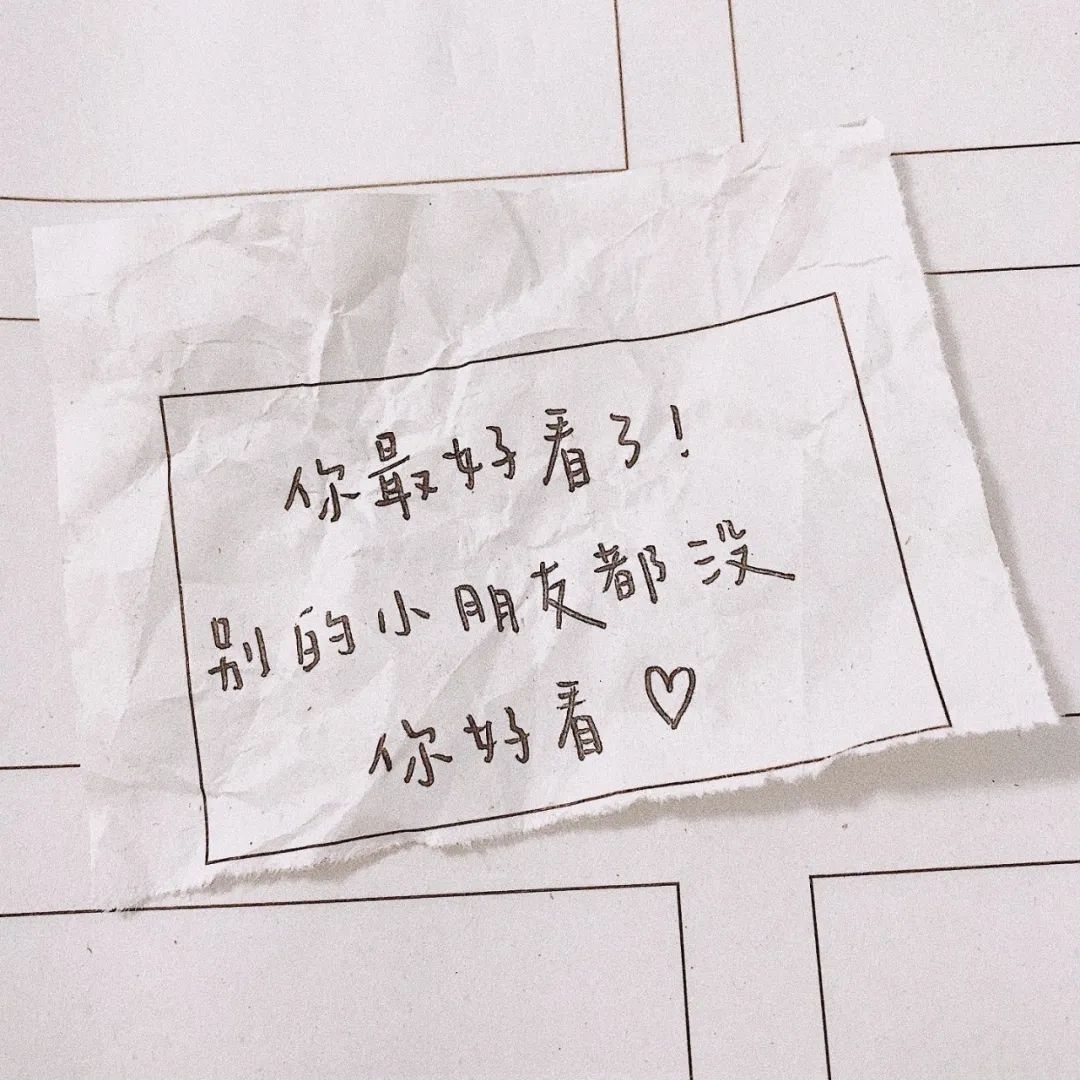 你最好看了！
别的小朋友都没
你好看♡